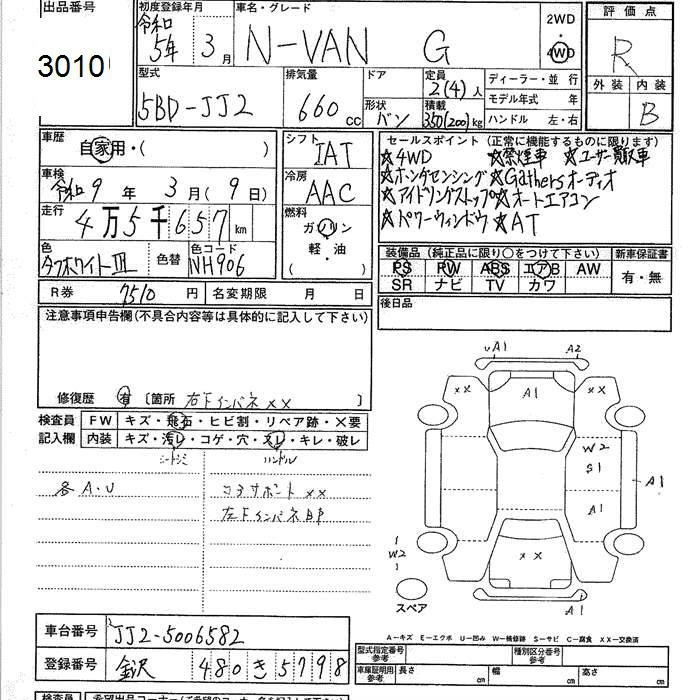 出品番号
30106
初度登録年月
令和
5年 3月
車名・グレード
N-VAN G
2WD
4WD
評価点
R
外装 内装
B
型式
5BD-JJ2
排気量
660 cc
ドア
形状
バン
定員
2(4)人
積載
350(200)kg
ディーラー・並行
モデル年式 年
ハンドル 左・右
車歴
自家用・( )
車検
令和9年 3月(9日)
走行
4万5千657km
色
タフホワイトIII
色替
色コード
NH906
シフト
IAT
冷房
AAC
燃料
ガソリン
軽・油
( )
セールスポイント(正常に機能するものに限ります)
☆4WD ☆禁煙車 ☆ユーザー買取車
☆ホンダセンシング☆Gathersオーディオ
☆アイドリングストップ☆オートエアコン
☆パワーウィンドウ☆AT
装備品(純正品に限り○をつけて下さい)
新車保証書
PS PW ABS エアB AW
SR ナビ TV カワ
有・無
R券 7510円
名変期限 月 日
後日品
注意事項申告欄(不具合内容等は具体的に記入して下さい)
修復歴 有 〔箇所 右下インパネ××〕
検査員
記入欄
FW キズ・飛石・ヒビ割・リペア跡・×要
内装 キズ・汚レ・コゲ・穴・スレ・キレ・破レ
シートシミ ハンドル
各A・U
コアサポート××
左下インパネ
uA1 A2
×× A1 ××
W2
S1
A1
A1
1
W2
1
××
A1
スペア
A-キズ E-エクボ U-凹み W-補修跡 S-サビ C-腐食 XX-交換済
車台番号 JJ2-5006582
登録番号 金沢 480 き 5798
型式指定番号
参考
種別区分番号
参考
車庫証明用
参考
長さ cm 幅 cm 高さ cm
検査員
希望出品コーナー(ご希望のコーナー名を記入して下さい)